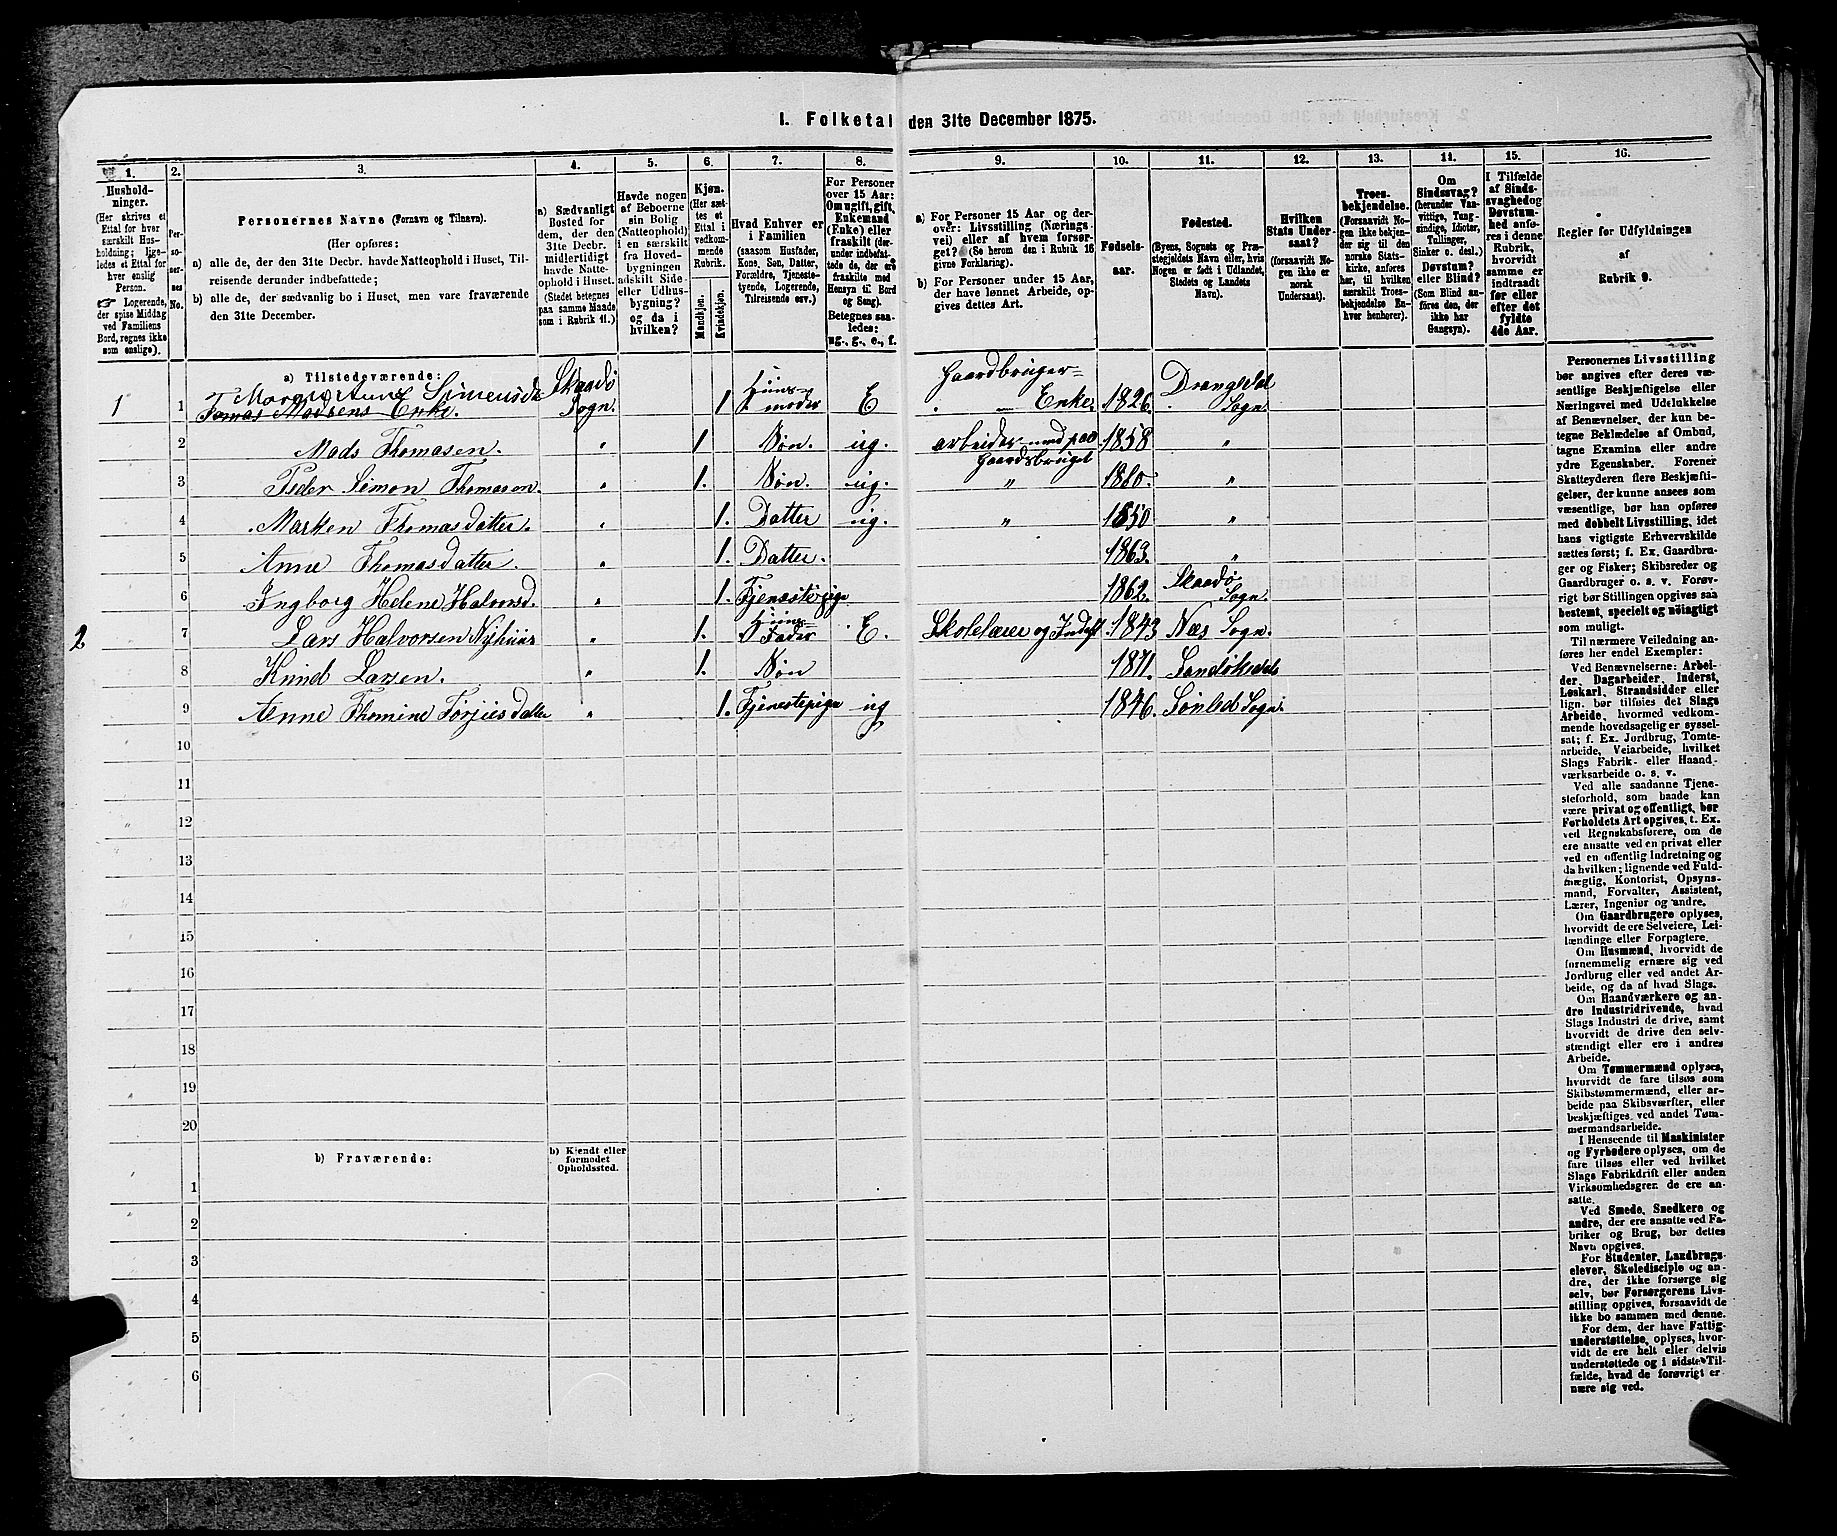 1. Folketal den 31te December 1875.
1. 2. 3. 4. 5. 6. 7. 8. 9. 10. 11. 12. 13. 14. 15. 16.
Hushold-
ninger.
(Her skrives et
Ettal for hver
særskilt Hus-
holdning; lige-
ledes et Ettal for
hver enslig
Person.
Logerende,
der spise Middag
ved Familiens
Bord, regnes ikke
som enslige).
Personernes Navne (Fornavn og Tilnavn).
(Her opføres:
a) alle de, der den 31te Decbr. havde Natteophold i Huset, Til-
reisende derunder indbefattede;
b) alle de, der sædvanlig bo i Huset, men vare fraværende
den 31te December.
a) Sædvanligt
Bosted for
dem, der den
31te Decbr.
midlertidigt
havde Natte-
ophold i Huset.
(Stedet betegnes
paa samme Maade
som i Rubrik 11.)
Havde nogen
af Beboerne
sin Bolig
(Natteophold)
i en særskilt
fra Hoved-
bygningen
adskilt Side-
eller Udhus-
bygning?
og da i
hvilken?
Kjøn.
(Her sæt-
tes et
Ettal i
vedkom-
mende
Rubrik.
Mandkjøn.
Kvindekjøn.
Hvad Enhver er
i Familien
(saasom Husfader,
Kone, Søn, Datter,
Forældre, Tjeneste-
tyende, Logerende,
Tilreisende osv.)
For Personer
over 15 Aar:
Om ugift, gift,
Enkemand
(Enke) eller
fraskilt (der-
under indbefat-
tede de, der ere
fraskilte med
Hensyn til Bord
og Seng).
Betegnes saa-
ledes:
ug., g., e., f.
a) For Personer 15 Aar og der-
over: Livsstilling (Nærings-
vei) eller af hvem forsør-
get? (Se herom den i Rubrik 16
givne Forklaring).
b) For Personer under 15 Aar,
der have lønnet Arbeide, op-
gives dettes Art.
Fødsels-
aar.
Fødested.
(Byens, Sognets og Præ-
stegjeldets Navn eller, hvis
Nogen er født i Udlandet,
Stedets og Landets
Navn).
Hvilken
Stats Under-
saat?
(forsaavidt No-
gen ikke er
norsk
Undersaat).
Troes-
bekjendelse.
(Forsaavidt No-
gen ikke bekjen-
der sig til den
norske Stats-
kirke, anføres
her, til hvilken
særskilt Troes-
bekjendelse En-
hver henhører).
Om
Sindssvag?
(herunder Van-
vittige, Tung-
sindige, Idioter,
Tullinger,
Sinker o. desl.)
Døvstum?
eller Blind?
(Som Blind an-
føres den, der
ikke har
Gangsyn).
I Tilfælde
af Sinds-
svaghed og
Døvstum-
hed anfø-
res i denne
Rubrik,
hvorvidt
samme er
indtraadt
før eller
efter det
fyldte
4de Aar.
Regler for Udfyldningen
af
Rubrik 9.
a) Tilstedeværende:
1 1 Maren Anne Simensd. Skaadø Sogn. 1 Huus-moder E Gaardbruger-Enke 1826. Drangedal Sogn.
Tomas Madsens Enke.
2 Mads Thomasen. " 1. Søn. ug. arbeider med paa Gaardsbruget 1858 "
3 Peder Simon Thomasen. " 1. Søn. ug. " 1860. "
4 Marken Thomasdatter. " 1. Datter ug. " 1850 "
5 Anne Thomasdatter. " 1. Datter. 1863. "
6 Ingborg Helene Halvorsd. " 1. Tjenestepige 1862. Skaadø Sogn.
2 7 Lars Halvorsen Nyhuus " 1. Huus-Fader E. Skolelærer og Inderst. 1843 Næs Sogn.
8 Knud Larsen. " 1. Søn 1871. Sandøkedal
9 Anne Thomine Torjusdatter " 1. Tjenestepige ug 1846. Sønled Sogn.
10
11
12
13
14
15
16
17
18
19
20
b) Fraværende:
b) Kjendt eller
formodet
Opholdssted.
1
2
3
4
5
6
Personernes Livsstilling
bør angives efter deres væ-
sentlige Beskjæftigelse eller
Næringsvei med Udelukkelse
af Benævnelser, der kun be-
tegne Beklædelse af Ombud,
tagne Examina eller andre
ydre Egenskaber. Forener
Skatteyderen flere Beskjæfti-
gelser, der kunne ansees som
væsentlige, bør han opføres
med dobbelt Livsstilling, idet
hans vigtigste Erhvervskilde
sættes først; f. Ex. Gaardbru-
ger og Fisker; Skibsreder og
Gaardbruger o. s. v. Forøv-
rigt bør Stillingen opgives saa
bestemt, specielt og nøiagtigt
som muligt.
Til nærmere Veiledning an-
føres her endel Exempler:
Ved Benævnelserne: Arbei-
der, Dagarbeider, Inderst,
Løskarl, Strandsidder eller
lign. bør tilføies det Slags
Arbeide, hvormed vedkom-
mende hovedsagelig er syssel-
sat; f. Ex. Jordbrug, Tomte-
arbeide, Veiarbeide, hvilket
Slags Fabrik- eller Haand-
værksarbeide o. s. v.
Ved alle saadanne Tjene-
steforhold, som baade kan
være privat og offentligt, bør
Forholdets Art opgives, t. Ex.
ved Regnskabsførere, om de
ere ansatte ved en privat eller
ved en offentlig Indretning og
da hvilken; lignende ved Fuld-
mægtig, Kontorist, Opsyns-
mand, Forvalter, Assistent,
Lærer, Ingeniør og andre.
Om Gaardbrugere oplyses,
hvorvidt de ere Selveiere, Lei-
lændinge eller Forpagtere.
Om Husmænd, hvorvidt de
fornemmelig ernære sig ved
Jordbrug eller ved andet Ar-
beide, og da af hvad Slags.
Om Haandværkere og an-
dre Industridrivende, hvad
Slags Industri de drive, samt
hvorvidt de drive den selv-
stændigt eller ere i andres
Arbeide.
Om Tømmermænd oplyses,
hvorvidt de fare tilsøs som
Skibstømmermænd, eller ar-
beide paa Skibsværfter, eller
beskjæftiges ved andet Tøm-
mermandsarbeide.
I Henseende til Maskinister
og Fyrbødere oplyses, om de
fare tilsøs eller ved hvilket
Slags Fabrikdrift eller anden
Virksomhedsgren de ere an-
satte.
Ved Smede, Snedkere og
andre, der ere ansatte ved Fa-
briker og Brug, bør dettes
Navn opgives.
For Studenter, Landbrugs-
elever, Skoledisciple og an-
dre, der ikke forsørge sig
selv, bør Forsørgerens Livs-
stilling opgives, forsaavidt de
ikke bo sammen med denne.
For dem, der have Fattig-
understøttelse, oplyses, hvor-
vidt de ere helt eller delvis
understøttede og i sidste Til-
fælde, hvad de forøvrigt er-
nære sig ved.